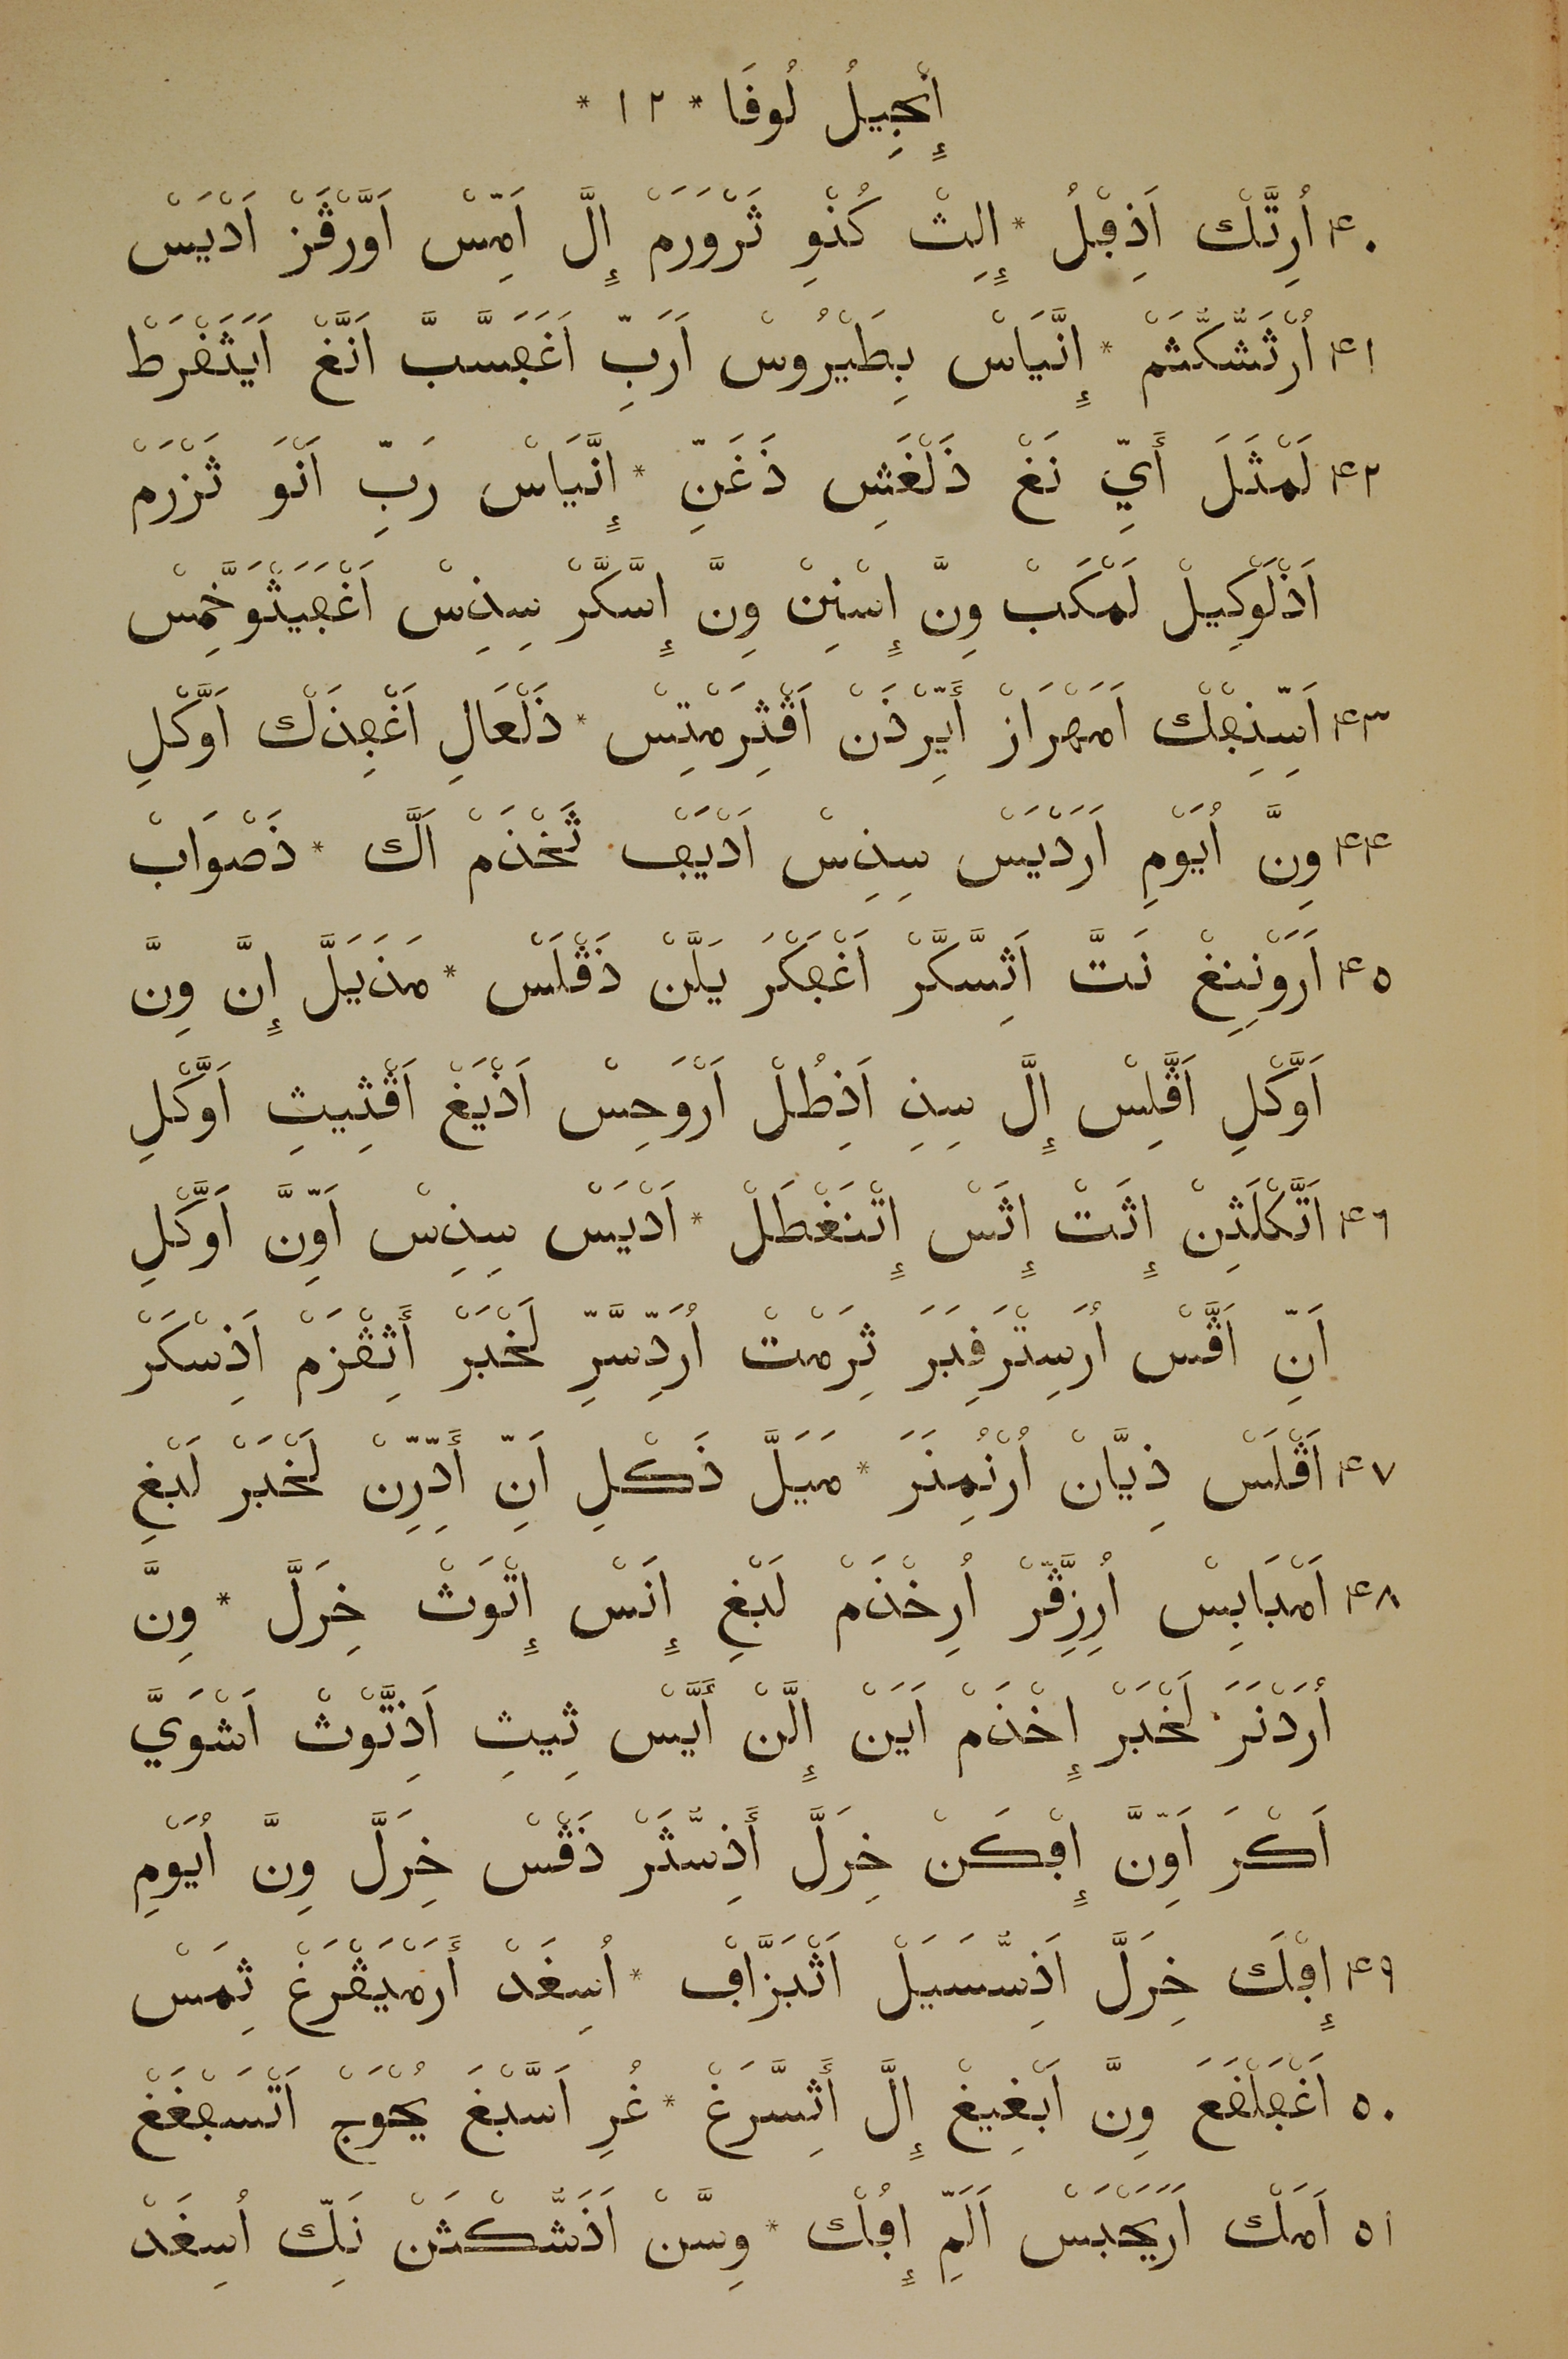 إَنْجِيلُ لُوقَا * ١٢ *
٤٠ أُرِتَّلْك اَذِڢْلُ * إِلِثْ كُنْوِ ثَرْوَرَمْ إِلَّ اَمِّسْ اَوَّرْڨَزْ اَدْيَسْ
٤١ أُرْثَشُّكَّثَمْ * إِنَّيَاسْ بِطَيْرُوسْ اَرَبِّ اَغَڢَسَّبَّ اَنَّغْ اَيَثَڢْرَطْ
٤٢ لَمْثَلَ أَيِّ نَغْ ذَلْغَشِ ذَغَنِّ * إِنَّيَاسْ رَبِّ اَنْوَ ثَزْرَمْ
اَذْلَوْكِيلْ لَمْكَبْ وِنَّ إِسْنِنْ وِنَّ إِسَّكَّرْ سِذِسْ اَغْڢَيَثْوَخَّمِسْ
٤٣ اَسِّنِڢْك اَمَهْرَازْ أَيِّرْذَنْ اَڨْثِرَمْتِسْ * ذَلْعَالِ اَغْڢِذَلْك اَوَّكْلِ
٤٤ وِنَّ اُيَوْمِ اَرَدْيَسْ سِذِسْ اَدْيَڢْ ثَخْذَمْ اَلَّك * ذَصْوَابْ
٤٥ اَرَوْنِنِغْ نَتَّ اَثِسَّكَّرْ اَغْڢَكْرَ يَلَّنْ ذَڨْلَسْ * مَذَيَلَّ إِنَّ وِنَّ
اَوَّكْلِ اَڨَّلِسْ إِلَّ سِذِ اَذِطُلْ اَرْوَحِسْ اَذْيَغْ اَڨْثِيثِ اَوَّكْلِ
٤٦ اَتَّكْلَثِنْ إِثَتْ إِثَسْ إِتْنَغْطَلْ * اَدْيَسْ سِذِسْ اَوِّنَّ اَوَّكْلِ
اَنِّ اَڨَّسْ اُرَسِتْرَڢِبَرَ ثِرَمْتْ اُرَدِّسَّرِّ لَخْبَرْ أَثِڨْزَمْ اَذِسْكَرْ
٤٧ اَڨْلَسْ ذِيَّانْ اُرْنُمِنَرَ * مَيَلَّ ذَكْلِ اَنِّ أَدِّرِّنْ لَخْبَرْ لَبْغِ
٤٨ اَمْبَابِسْ اُرِزِڨَّرْ اُرِخْذَمْ لَبْغِ إِنَسْ إِتْوَثْ خِرَلَّ * وِنَّ
اُرَدْنَرَ لَخْبَرْ إِخْذَمْ اَيَنْ إِلَّنْ أَيَّسْ ثِيثِ اَذِتَّوْثْ اَشْوَيَّ
اَكْرَ اَوِّنَّ إِڢْكَنْ خِرَلَّ أَذِسُّثَرْ ذَڨْسْ خِرَلَّ وِنَّ اُيَوْمِ
٤٩ إِڢْلَك خِرَلَّ اَذِسُّسَيَلْ اَثْبَزَّاڢْ * اُسِغَدْ أَرَمْيَڨْرَغْ ثِمَسْ
٥٠ اَغْڢَلْڢَعَ وِنَّ اَبْغِيغْ إِلَّ أَثِسَّرَغْ * غُرِ اَسَّبْغَ يُحْوَجْ اَتْسَڢْغَغْ
٥١ اَمَلْك اَرَيَحْبَسْ اَلَمِّ إِڢُلْك * وِسَّنْ اَذَشُّكْثَنْ نَكِّ اُسِغَدْ